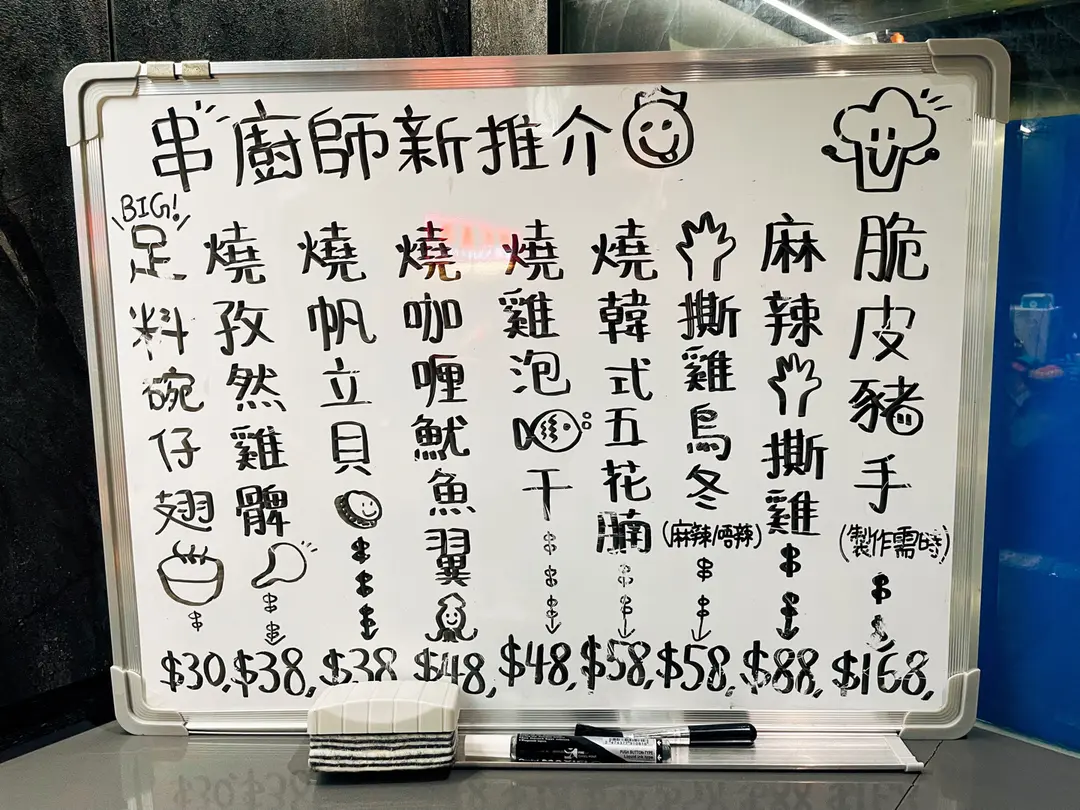 串廚師新推介
脆皮豬手
(製作需時)
$168,
麻辣撕雞
$88,
撕雞烏冬
(麻辣/唔辣)
$58,
燒韓式五花腩
$58,
燒雞泡干
$48,
燒咖喱魷魚翼
$48,
燒帆立貝
$38
燒孜然雞髀
$38,
BIG!
足料碗仔翅
$30,
PUSH BUTTON TYPE